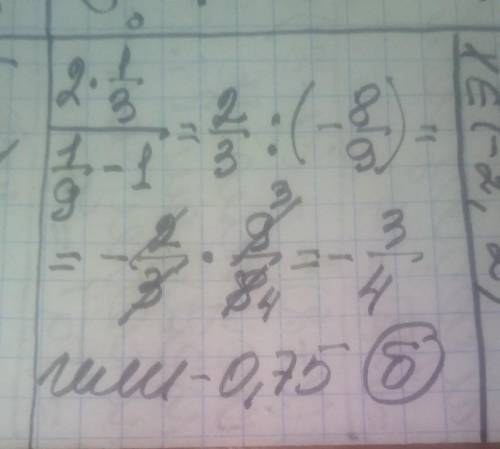 (2 · 1/3) / (1/9 - 1) = 2/3 : (- 8/9) =
= - 2/3 · 9/8 = - 3/4
или - 0,75 б